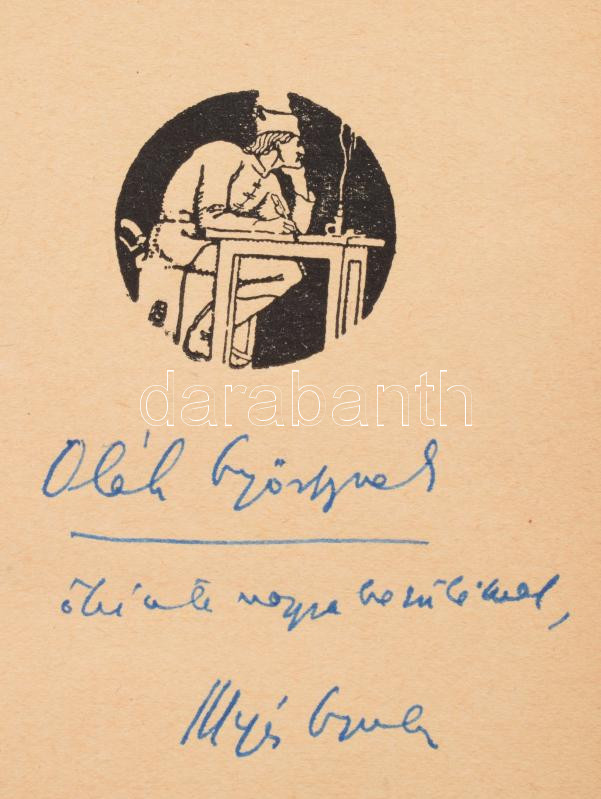 darabanth
Oláh Györgynek
őszinte nagyrabecsüléssel,
Illyés Gyula